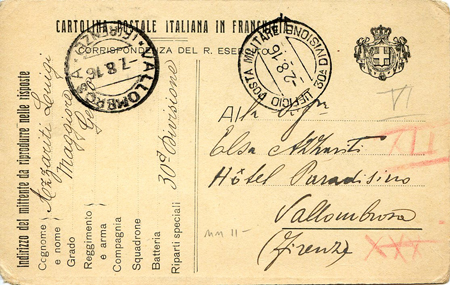 CARTOLINA POSTALE ITALIANA IN FRANCHIGIA
CORRISPONDENZA DEL R. ESERCITO
VALLOMBROSA
7-8-16
UFFICIO POSTA MILITARE 30ª DIVISIONE
-2.8.16
Indirizzo del mittente da riprodurre nelle risposte
Cognome e nome: Azzariti Luigi
Grado Maggiore
Reggimento e arma:
Compagnia
Squadrone
Batteria
Riparti speciali 30ª Divisione
Alla
Elsa Azzariti
Hôtel Paradisino
Vallombrosa
(Firenze)
VI
XXI